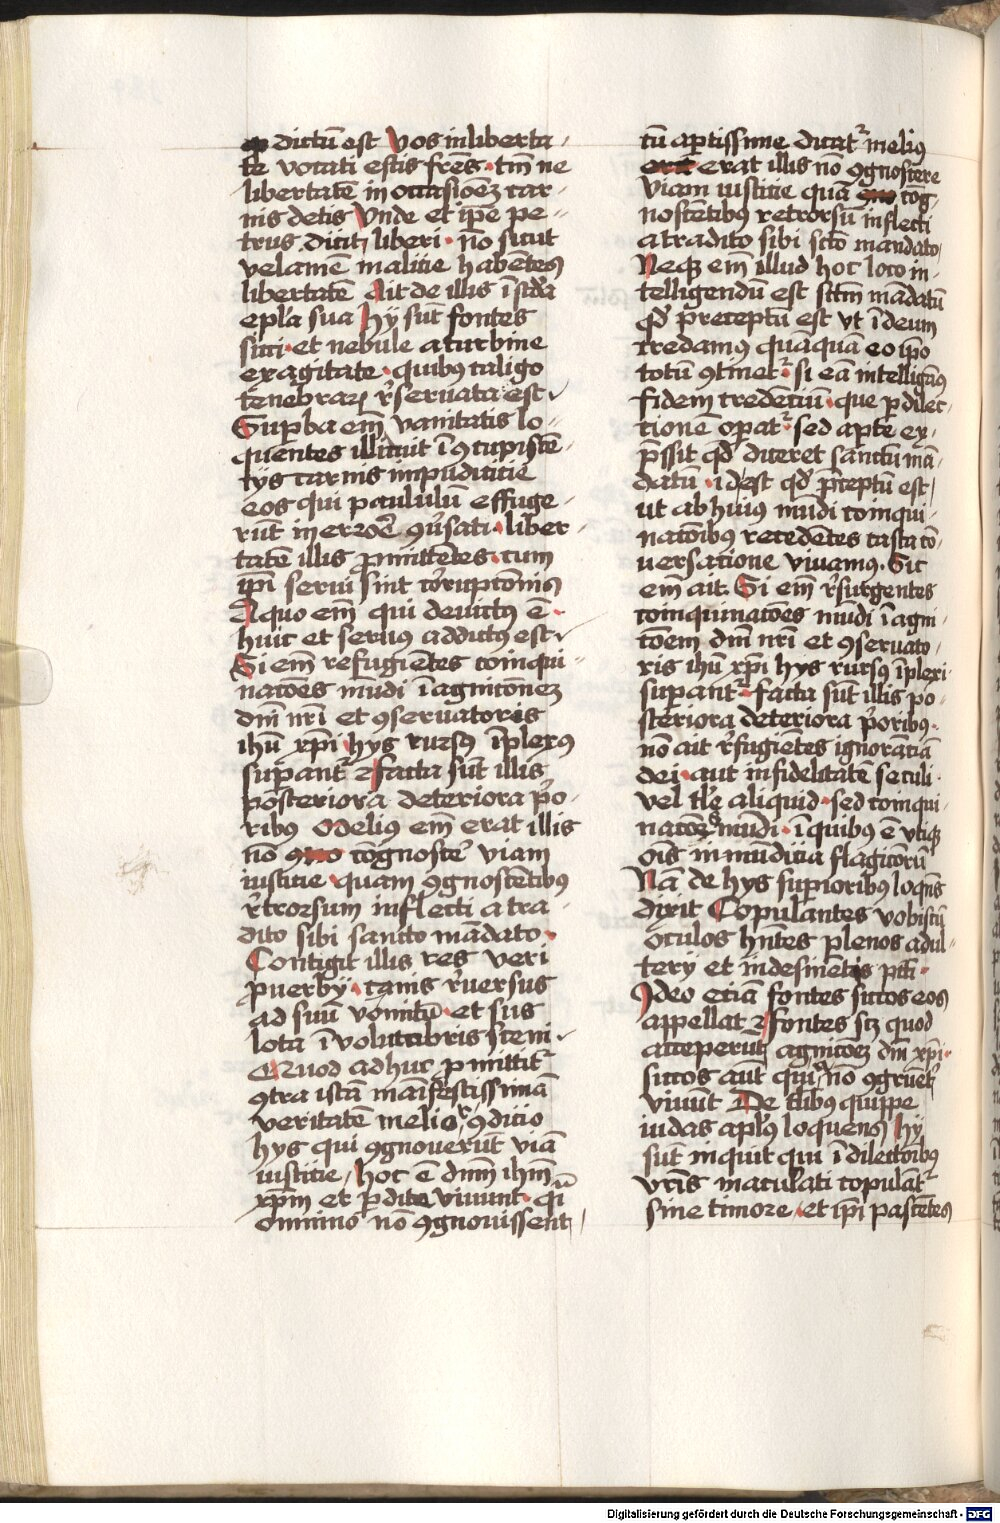 dictū est Vos in liberta
te vocati estis frēs · tm̄ ne
libertatē in occasionē car
nis detis Vnde et ip̄e pe
trus dicit liberi · nō sicut
velamē malitie habētes
libertatē Ait de illis ī scd̄a
epl̄a sua hij sūt fontes
sicci · et nebule a turbine
exagitate · quibus caligo
tenebraꝝ rˀseruata est
Suꝑba em̄ vanitatis lo
quentes illiciuit ī ꝯcupiscē
tijs carnis impudicitie
eos qui paululū effuge
rūt in errore ꝯuˀsati · liber
tatē illis ꝓmittētes · cum
ip̄i serui sint corruptōnis
A quo em̄ qui deuictus ē ·
huic et seruus addictus est
Si em̄ refugiētes coinqui
natōes mūdi ī agnitionē
dn̄i nr̄i et ꝯseruatoris
ihū xp̄i hijs rursus īplexus
suꝑantˀ ⁊ facta sūt illis
posteriora deteriora pˀo
ribus Melius em̄ erat illis
nō cōgnoscerˀ viam
iusticie · quam ꝯgnoscētibus
rˀtrorsum inflecti a tra
dito sibi sancto mādato ·
Contigit illis res veri
ꝓuerbij · canis rˀuersus
ad suū vomitū · et sus
lota ī volutabris sceni ·
Quod adhuc ꝓmittitˀ
ꝯtra istā manīfestissimā
veritatē meliorˀ ꝯditio
hijs qui ꝯgnouerūt viā
iusticie / hoc ē dn̄m ihm̄
xp̄m et ꝑdite viuunt · qˀ
omnino nō ꝯgnouissent
tū aꝑtissime dicatˀ melius
erat illis nō ꝯgnoscere
viam iusticie quā cōg
noscētibus retrorsū inflecti
a tradito sibi scto mandato
Neqꝫ em̄ illud hoc loco in
telligendū est sctm̄ mādatū
qd̄ preceptū est vt ī deum
credamus quāquā eo ip̄o
totū ꝯtinetˀ · si eā intelligāus
fidem credētiū · que ꝑ dilec
tionē oꝑatˀ · sed aꝑte ex
p̄ssit qd̄ diceret sanctū mā
datū · id est qd̄ p̄ceptū est
ut ab huius mūdi coinqui
natōibus recedētes casta cō
uersatione viuamus. Sic
em̄ ait. Si em̄ rˀfurgentes
coinquinatōes mūdi ī agni
tōem dn̄i nr̄i et ꝯseruato
ris ihū xp̄i hijs rursus īplexi
suꝑantˀ · facta sūt illis po
steriora deteriora pˀoribus ·
nō ait rˀfugiētes ignorātiā
dei · aut infidelitatē seculi ·
vel tl̄e aliquid · sed coinqui
natōes mūdi · ī quibus ē vtiqꝫ
oīs inmūditia flagitiorū
Nā de hijs suꝑioribus loquēs
dixit Copulantes vobiscū
oculos hn̄tes plenos adul
terij et indesinētis pctī ·
Ideo etiā fontes siccos eos
appellat ⁊ fontes scꝫ quod
acceperūt agnitōeꝫ dn̄i xp̄i ·
siccos aūt quia nō ꝯgruētˀ
viuūt De tl̄ibus quippe
iudas apl̄us loquens hij
sūt inquit qui ī dilectōibus
vr̄is maculati copulātˀ
sine timore · et ip̄i pascētes
Digitalisierung gefördert durch die Deutsche Forschungsgemeinschaft - DFG